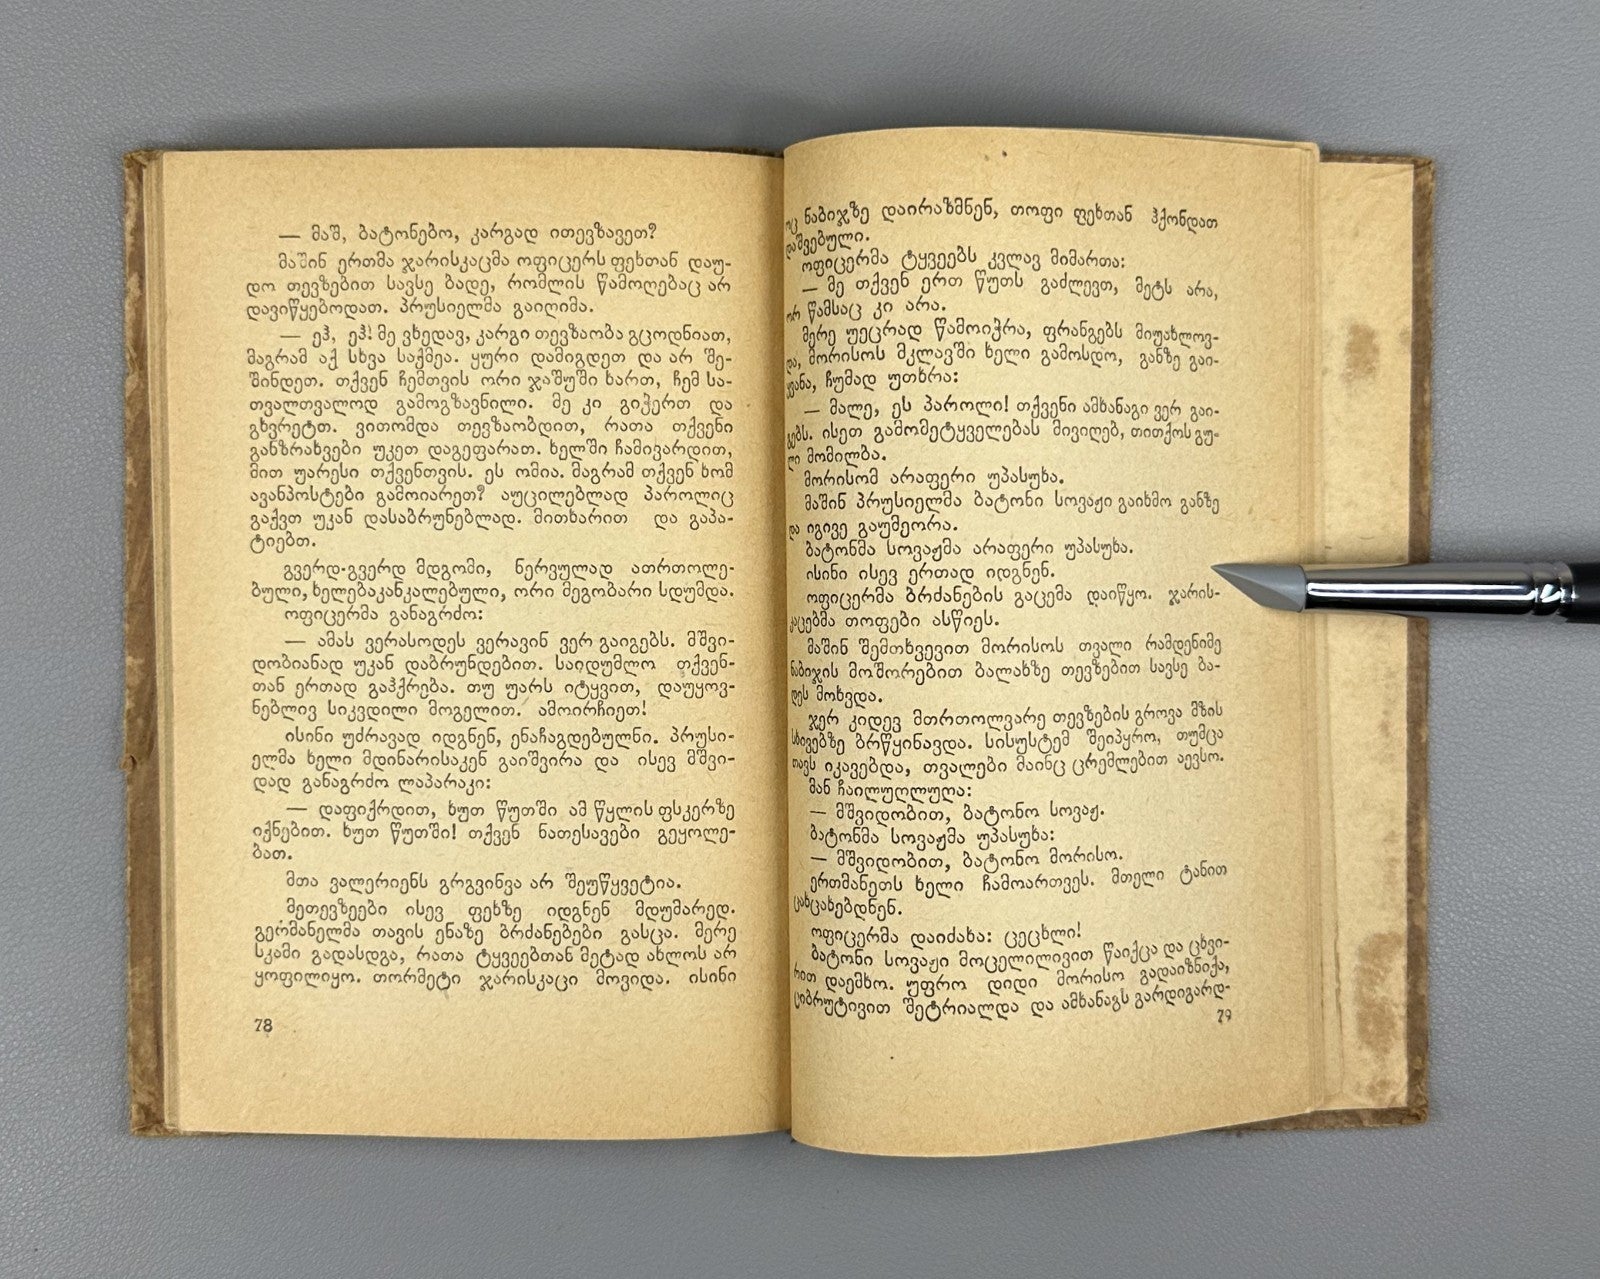 — მაშ, ბატონებო, კარგად ითევზავეთ?
მაშინ ერთმა ჯარისკაცმა ოფიცერს ფეხთან დაუ-
დო თევზებით სავსე ბადე, რომლის წამოღებაც არ
დავიწყებოდათ. პრუსიელმა გაიღიმა.
— ეჰ, ეჰ! მე ვხედავ, კარგი თევზაობა გცოდნიათ,
მაგრამ აქ სხვა საქმეა. ყური დამიგდეთ და არ შე-
შინდეთ. თქვენ ჩემთვის ორი ჯაშუში ხართ, ჩემ სა-
თვალთვალოდ გამოგზავნილი. მე კი გიჭერთ და
გხვრეტთ. ვითომდა თევზაობდით, რათა თქვენი
განზრახვები უკეთ დაგეფარათ. ხელში ჩამივარდით,
მით უარესი თქვენთვის. ეს ომია. მაგრამ თქვენ ხომ
ავანპოსტები გამოიარეთ? აუცილებლად პაროლიც
გაქვთ უკან დასაბრუნებლად. მითხარით და გაპა-
ტიებთ.
გვერდ-გვერდ მდგომი, ნერვულად ათრთოლე-
ბული, ხელებაკანკალებული, ორი მეგობარი სდუმდა.
ოფიცერმა განაგრძო:
— ამას ვერასოდეს ვერავინ ვერ გაიგებს. მშვი-
დობიანად უკან დაბრუნდებით. საიდუმლო თქვენ-
თან ერთად გაჰქრება. თუ უარს იტყვით, დაუყოვ-
ნებლივ სიკვდილი მოგელით. ამოირჩიეთ!
ისინი უძრავად იდგნენ, ენაჩაგდებულნი. პრუსი-
ელმა ხელი მდინარისაკენ გაიშვირა და ისევ მშვი-
დად განაგრძო ლაპარაკი:
— დაფიქრდით, ხუთ წუთში ამ წყლის ფსკერზე
იქნებით. ხუთ წუთში! თქვენ ნათესავები გეყოლე-
ბათ.
მთა ვალერიენს გრგვინვა არ შეუწყვეტია.
მეთევზეები ისევ ფეხზე იდგნენ მდუმარედ.
გერმანელმა თავის ენაზე ბრძანებები გასცა. მერე
სკამი გადასდგა, რათა ტყვეებთან მეტად ახლოს არ
ყოფილიყო. თორმეტი ჯარისკაცი მოვიდა. ისინი
78
ოც ნაბიჯზე დაირაზმნენ, თოფი ფეხთან ჰქონდათ
დაშვებული.
ოფიცერმა ტყვეებს კვლავ მიმართა:
— მე თქვენ ერთ წუთს გაძლევთ, მეტს არა,
ორ წამსაც კი არა.
მერე უეცრად წამოიჭრა, ფრანგებს მიუახლოვ-
და, მორისოს მკლავში ხელი გამოსდო, განზე გაი-
ყვანა, ჩუმად უთხრა:
— მალე, ეს პაროლი! თქვენი ამხანაგი ვერ გაი-
გებს. ისეთ გამომეტყველებას მივიღებ, თითქოს გუ-
ლი მომილბა.
მორისომ არაფერი უპასუხა.
მაშინ პრუსიელმა ბატონი სოვაჟი გაიხმო განზე
და იგივე გაუმეორა.
ბატონმა სოვაჟმა არაფერი უპასუხა.
ისინი ისევ ერთად იდგნენ.
ოფიცერმა ბრძანების გაცემა დაიწყო. ჯარის-
კაცებმა თოფები ასწიეს.
მაშინ შემთხვევით მორისოს თვალი რამდენიმე
ნაბიჯის მოშორებით ბალახზე თევზებით სავსე ბა-
დეს მოხვდა.
ჯერ კიდევ მთრთოლვარე თევზების გროვა მზის
სხივებზე ბრწყინავდა. სისუსტემ შეიპყრო, თუმცა
თავს იკავებდა, თვალები მაინც ცრემლებით აევსო.
მან ჩაილუღლუღა:
— მშვიდობით, ბატონო სოვაჟ.
ბატონმა სოვაჟმა უპასუხა:
— მშვიდობით, ბატონო მორისო.
ერთმანეთს ხელი ჩამოართვეს. მთელი ტანით
ცახცახებდნენ.
ოფიცერმა დაიძახა: ცეცხლი!
ბატონი სოვაჟი მოცელილივით წაიქცა და ცხვი-
რით დაემხო. უფრო დიდი მორისო გადაიზნიქა,
ციბრუტივით შეტრიალდა და ამხანაგს გარდიგარდ-
79